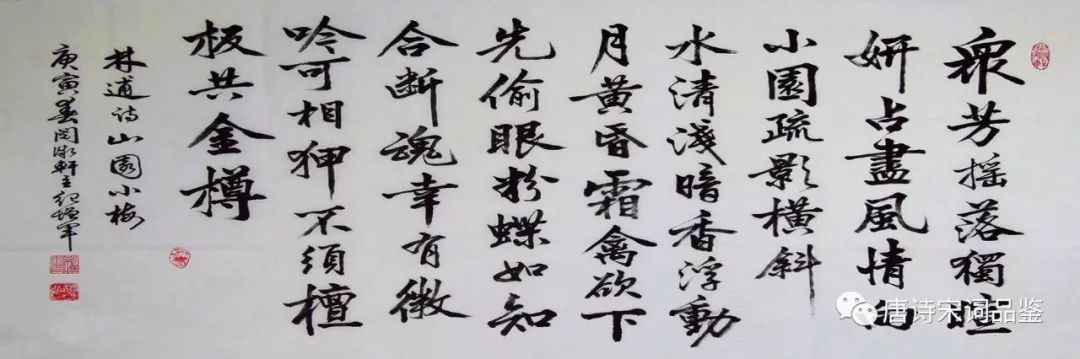 衆芳摇落獨暄
妍占盡風情向
小園疏影橫斜
水清淺暗香浮動
月黃昏霜禽欲下
先偷眼粉蝶如知
合断魂幸有微
吟可相狎不須檀
板共金樽
林逋诗山園小梅
庚寅春
唐诗宋词品鉴